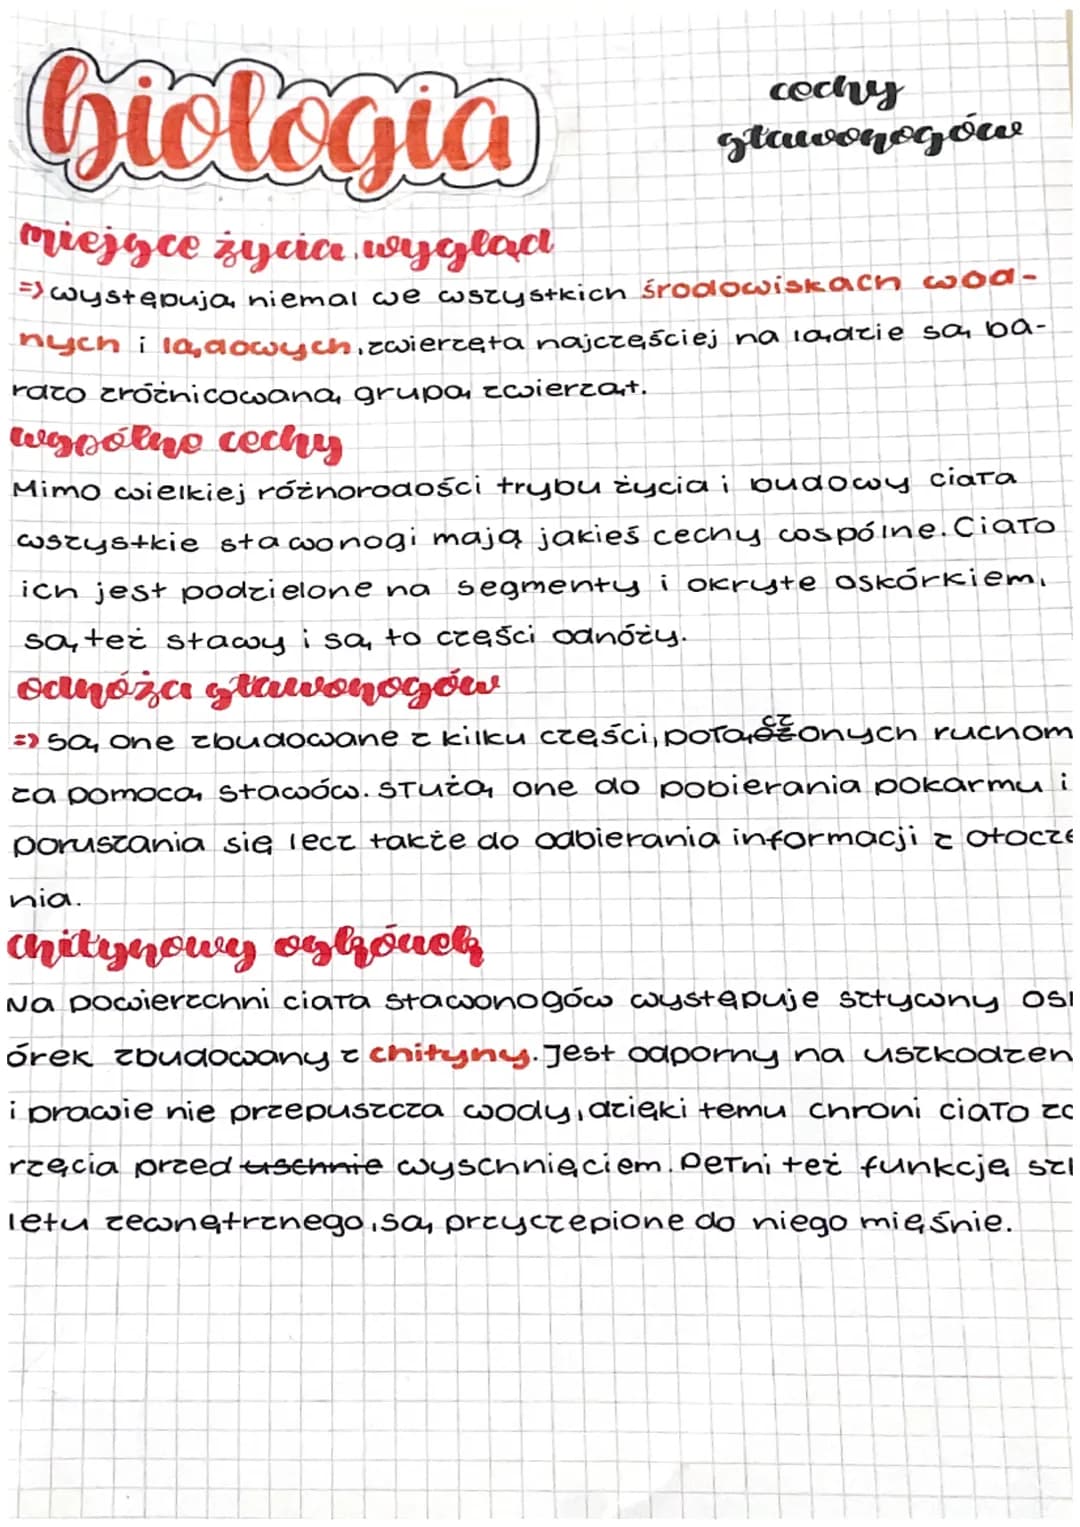 biologia
cechy
stawonogów
miejsce życia, wygląd
=> występują niemal we wszystkich środowiskach wod-
nych i lądowych, zwierzęta najczęściej na lądzie są ba-
rdzo zróżnicowaną grupą zwierząt.
wspólne cechy
Mimo wielkiej różnorodości trybu życia i budowy ciała
wszystkie stawonogi mają jakieś cechy wspólne. Ciało
ich jest podzielone na segmenty i okryte oskórkiem,
są też stawy i są to części odnóży.
odnóża stawonogów
=> są one zbudowane z kilku części, połączonych ruchom
za pomocą stawów. Służą one do pobierania pokarmu i
poruszania się lecz także do odbierania informacji z otocze
nia.
chitynowy oskórek
Na powierzchni ciała stawonogów występuje sztywny os
órek zbudowany z chityny. Jest odporny na uszkodzen
i prawie nie przepuszcza wody, dzięki temu chroni ciało z
rzęcia przed uschnie wyschnięciem. Pełni też funkcję sz
letu zewnętrznego, są przyczepione do niego mięśnie.